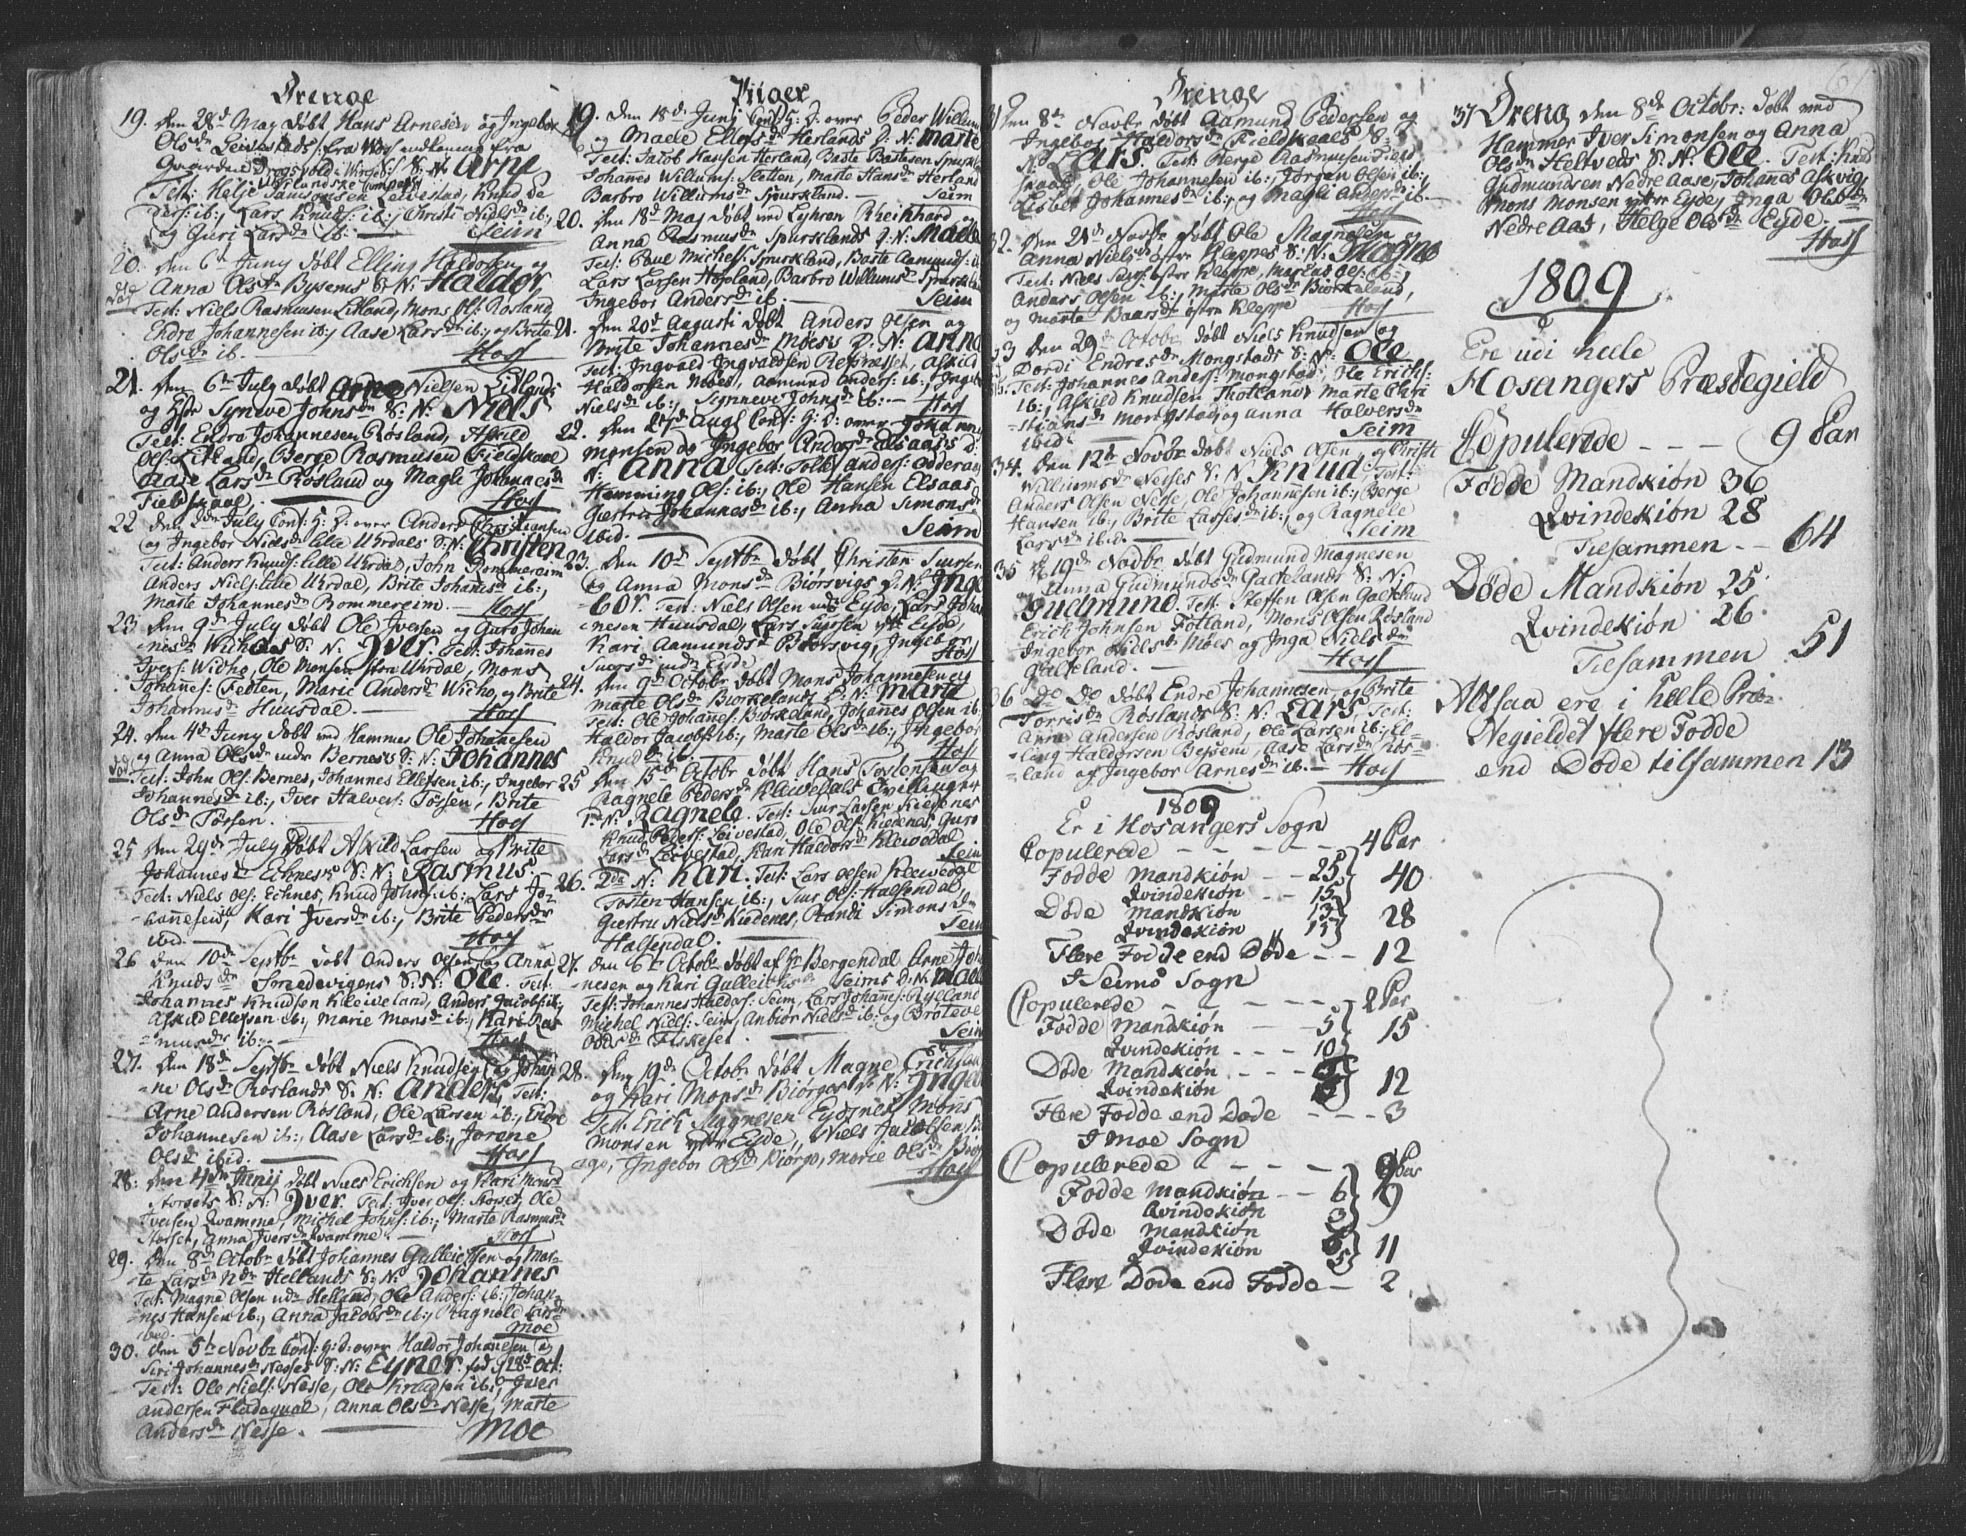 Drenge
19. den 28d May døbt Hans Arnesen og Ingebor
Olsdr Leivestads: fra
Gaarden
S: N: Arne
Test: Helje Samsonsen Leivestad, Knud
ib:, Lars Knuds: ib:, Christi Nielsdr ib:,
og Guri Larsdr ib: Seim
20. den 6te Juny døbt Elling Haldorsen og
Anna Olsdr Bysems S: N: Haldor
Test: Niels Rasmusen Litland, Mons Ols: Rosland
Endre Johannesen ib:, Aase Larsdr ib:, og Brite
Olsdr ib. Hosf
21. den 6te July døbt Arne Nielsen Litlands
og Hstr Syneve Johnsdr S: N: Niels
Test: Endre Johannesen Røsland, Askild
Ols: Litland, Berge Rasmusen Fieldskaal
Aase Larsdr Røsland og Magli Johannesdr
Fieldskaal. Hosf
22 den July Conf: H: D: over Anders Christiansen
og Ingebor Nielsdr Lille Uhrdals S: N: Christen
Test: Anders Knuds: Lille Uhrdal, John Rommereim
Anders Niels: Lille Uhrdal, Brite Johannesdr ib:,
Marte Johannesdr Rommereim. Hosf
23 den 9de July døbt Ole Iversen og Guro Johan
nesdr Wichoes S: N: Iver. Test: Johanes
Ivers: Wicho, Ole Monsen fra Uhrdal, Mons
Johannes: Fedten, Marie Andersdr Wicho, og Brite
Johannesdr Huusdal. Hosf
24. den 4de Juny døbt ved Hammer Ole Johannesen
og Anna Olsdr nedre Bernes S: N: Johannes
Test: John Ols: Bernes, Johannes Ellefsen ib:, Ingebor
Johannesdr ib:, Iver Halvors: Tøssen, Brite
Olsdr Tøssen. Hosf
25 den 29de July Døbt Askild Larsen og Brite
Johannesdr Echnes S: N: Rasmus.
Test: Niels Ols: Echnes, Knud Johns: ib:, Lars Jo-
hannesen, Kari Iversdr ib:, Brite Pedersdr
ibid. Hosf
26 den 10de Septbr døbt Anders Olsen og Anna
Knudsdr Sördevigens S: N: Ole. Test:
Johannes Knudsen Kleiveland, Anders Jacobs: ib:,
Askild Ellefsen ib:, Marie Monsdr ib:, Kari Ras
musdr ib: Hosf
27. den 18de Septbr døbt Niels Knudsen og Johan
ne Olsdr Røslands S: N: Anders, Test:
Arne Andersen Røsland, Ole Larsen ib:, Endre
Johannesen ib:, Aase Larsdr ib:, Jorene
Olsdr ibid. Hosf
28. den 4de Junij døbt Niels Erichsen og Kari Monsdr
Storsets S: N: Iver. Test: Iver Ols: Storset, Ole
Iversen Kvamme, Michel Johns: ib:, Marte Rasmusdr
Storset, Anna Iversdr Kvamme. Hosf
29. den 8de Octobr døbt Johannes Gulleichsen og Mar-
te Larsdr ndr Hellands S: N: Johannes
Test: Magne Olsen ndr Helland, Ole Anders: ib:, Johan
nes Hansen ib:, Anna Jacobsdr ib:, Ragnele Larsdr
ibid. Moe
30. den 5te Novbr Conf: H: D: over Haldor Johannesen og
Siri Johannesdr Nesses S: N: Eyner. fød 28de Oct:
Test: Ole Niels: Nesse, Ole Knudsen ib:,
Andersen Fladaqual, Anna Olsdr Nesse, Marte
Andersdr Nesse. Moe
Piiger
19. den 18de Junij Conf: H: D: over Peder Willum
og Maele Ellefsdr Herlands D: N: Marte
Test: Jacob Hansen Herland, Baste Bastesen Spurkl
Johanes Willums: Sletten, Marte Hansdr Herland
Barbro Williumsdr Spurkland. Seim
20. den 18de Maj døbt ved Lyhren Rheichhard og
Anna Rasmusdr Spurklands D: N: Maele
Test: Poul Michels: Spurkland, Baste Aamunds: ib
Lars Larsen Hopland, Barbro Willumsdr Spurkland
Ingebor Andersdr ib. Seim
21. den 20de Augusti døbt Anders Olsen og
Brite Johannesdr Moes D: N: Anna
Test: Ingvald Ingvaldsen Repnesset, Askild
Haldorsen Moes, Aamund Anders: ib:, Ingebor
Nielsdr ib:, Synneve Johnsdr ib:. Hosf
22. den 27de Augl Conf: H: D: over Johannes
Monsen og Ingebor Andersdr Elsaas D:
N: Anna Test: Tolle Anders: Odderaa
Hemming Ols: ib:, Ole Hansen Elsaas
Giertru Johannesdr ib:, Anna Simonsdr
ibid. Seim
23. den 10de Septbr døbt Christen Siursen
og Anna Monsdr Biørsvigs D: N: Inge
bor. Test: Niels Olsen ndr Eyde, Lars Johan
nesen Huusdal, Lars Siursen Eyde,
Kari Aamundsdr Biørsvig, Ingebor
Siursdr ndr Eyde Hosf
24. den 9de Octobr døbt Mons Johannesen og
Marte Olsdr Biørkelands D: N: Marte
Test: Ole Johannes: Biørkeland, Johannes Olsen ib:,
Haldor Jacobs: ib:, Marte Olsdr ib:, Ingebor
Knudsdr ib. Hosf
25 den 15de Octobr døbt Hans Tostensen og
Ragnele Pedersdr Kleivedals Tvillinger
1. N: Ragnele. Test: Siur Larsen Kiedenes
Knud Peders: Leivestad, Ole Ols: Kiedenes, Guro
Larsdr Leivestad, Kari Haldorsdr Kleivedal
Seim
26. 2de N: Kari. Test: Lars Olsen Kleivedal
Tosten Hansen ib:, Siur Ols: Halsendal,
Giertru Nielsdr Kiedenes, Randi Simonsdr
Halsendal. Seim
27. den 6te Octobr døbt af Hr Bergendal Arne Joha
nesen og Kari Gulleichsdr Seims D: N: Maele
Test: Johannes Haldors: Seim, Lars Johannes: Rylland
Michel Niels: Seim, Anbiør Nielsdr ib: og Broteve
Oddsdr Fiskeset. Seim
28. den 19de Octobr døbt Magne Erichsen
og Kari Monsdr Biørges D: N: Inge
Test: Erich Magnesen Eydsnes, Mons
Monsen ytre Eyde, Niels Jacobsen
ge, Ingebor Olsdr Biørge, Marie Olsdr Biør
Hosf
Drenge
31 Den 8de Novbr døbt Aamund Pedersen og
Ingebor Haldorsdr Fieldskaals S:
N: Lars. Test: Berge Rasmusen Field
skaal, Ole Johannesen ib:, Jørgen Olsen ib:,
Lisbet Johannesdr ib:, og Magli Andersdr ib.
Hosf
32. den 21de Novbr døbt Ole Magnesen og
Anna Nielsdr østre Kleppes S: N: Magne
Test: Niels østre Kleppe, Marcus Ols: ib:,
Anders Olsen ib:, Marte Olsdr Biørkeland,
og Marte Baarsdr østre Kleppe Hosf
33 den 29de Octobr døbt Niels Knudsen og
Dordi Endresdr Mongstads S: N: Ole
Test: Johannes Anders: Mongstad, Ole Erichs:
ib:, Askild Knudsen Thotland, Marte Chri
stiansdr Mongstad, og Anna Halversdr
ibid: Seim
34. den 12te Novbr døbt Niels Olsen, og Christi
Williumsdr Nesses S: N: Knud, Test:
Anders Olsen Nesse, Ole Johannesen ib:, Berge
Hansen ib:, Brite Lassesdr ib:, og Ragnele
Larsdr ibid. Seim
35 d: 19de Novbr døbt Gudmund Magnesen
og Anna Gudmundsdr Galtelands S: N:
Gudmund. Test: Steffen Olsen Galteland
Erich Johnsen Fotland, Mons Olsen Røsland
Ingebor Nielsdr Moes og Inga Nielsdr
Galteland. Hosf
36 De Do døbt Endre Johannesen, og Brite
Torrisdr Røslands S: N: Lars, Test:
Arne Andersen Røsland, Ole Larsen ib:, El-
ling Haldorsen Bysem, Aase Larsdr Røs-
land og Ingebor Arnesdr ib. Hosf
1809
Er i Hosangers Sogn
Copulerede - - - - - 4 Par
Fødde Mandkiøn - - 25
Qvindekiøn - - 15 40
Døde Mandkiøn 13
Qvindekiøn 15 28
Flere Fødde end Døde - - 12
I Seims Sogn
Copulerede - - - - - 2 Par
Fødde Mandkiøn - - 5 15
Qvindekiøn - - - 10
Døde Mandkiøn
Qvindekiøn 12
Flere Fødde end Døde - - - 3
I Moe Sogn
Copulerede - - - - Par
Fødde Mandkiøn - - 6 9
Qvindekiøn 3
Døde Mandkiøn 6
Qvindekiøn 5 11
Flere Døde end Fødde - 2
37 Dreng den 8de Octobr: døbt ved
Hammer Iver Simonsen og Anna
Olsdr Heltveds S: N: Ole. Test: Knud
Gudmundsen Nedre Aase, Johanes Askvig,
Mons Monsen ytre Eyde, Inga Olsdr
Nedre Aas, Helge Olsdr Eyde.
Hosf
1809
Er udi heele
Hosangers Præstegield
Copulerede - - - 9 Par
Fødde Mandkiøn 36
Qvindekiøn 28
Tilsammen - - 64
Døde Mandkiøn 25
Qvindekiøn 26
Tilsammen 51
Altsaa ere i heele Præ-
stegieldet flere Fødde
end Døde tilsammen 13